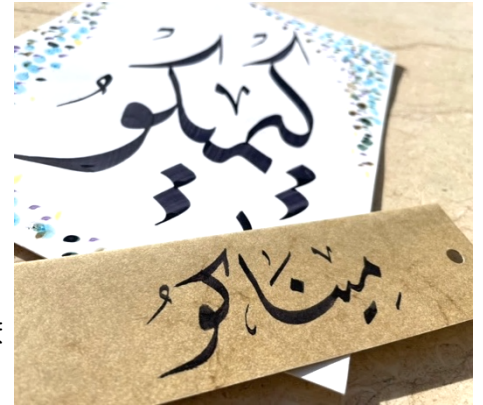 كيمِيكُو
مِينَاكُو